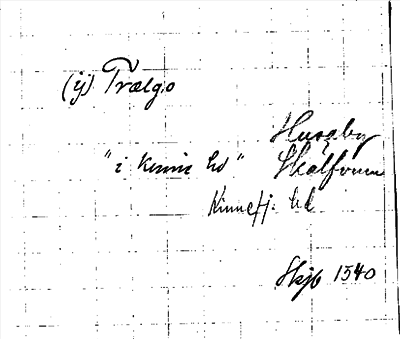 (ij) Trælgo
Husaby
"i kinne hd" Skalfvum
Kinnefj. hd
Skjb 1540